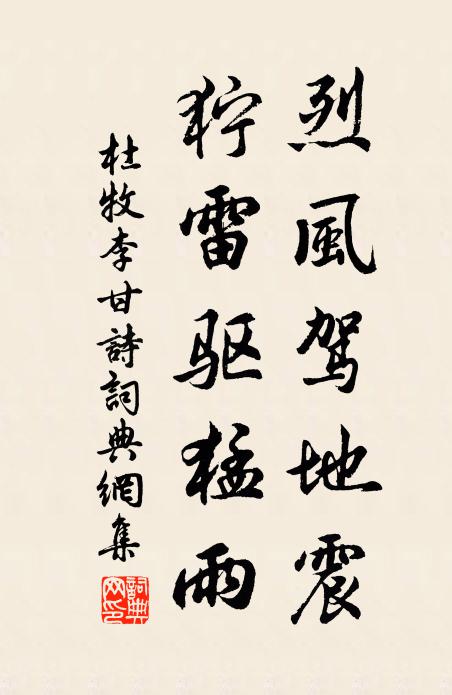 烈風驾地震
狞雷驱猛雨
杜牧李甘詩詞典網集
詞典网印